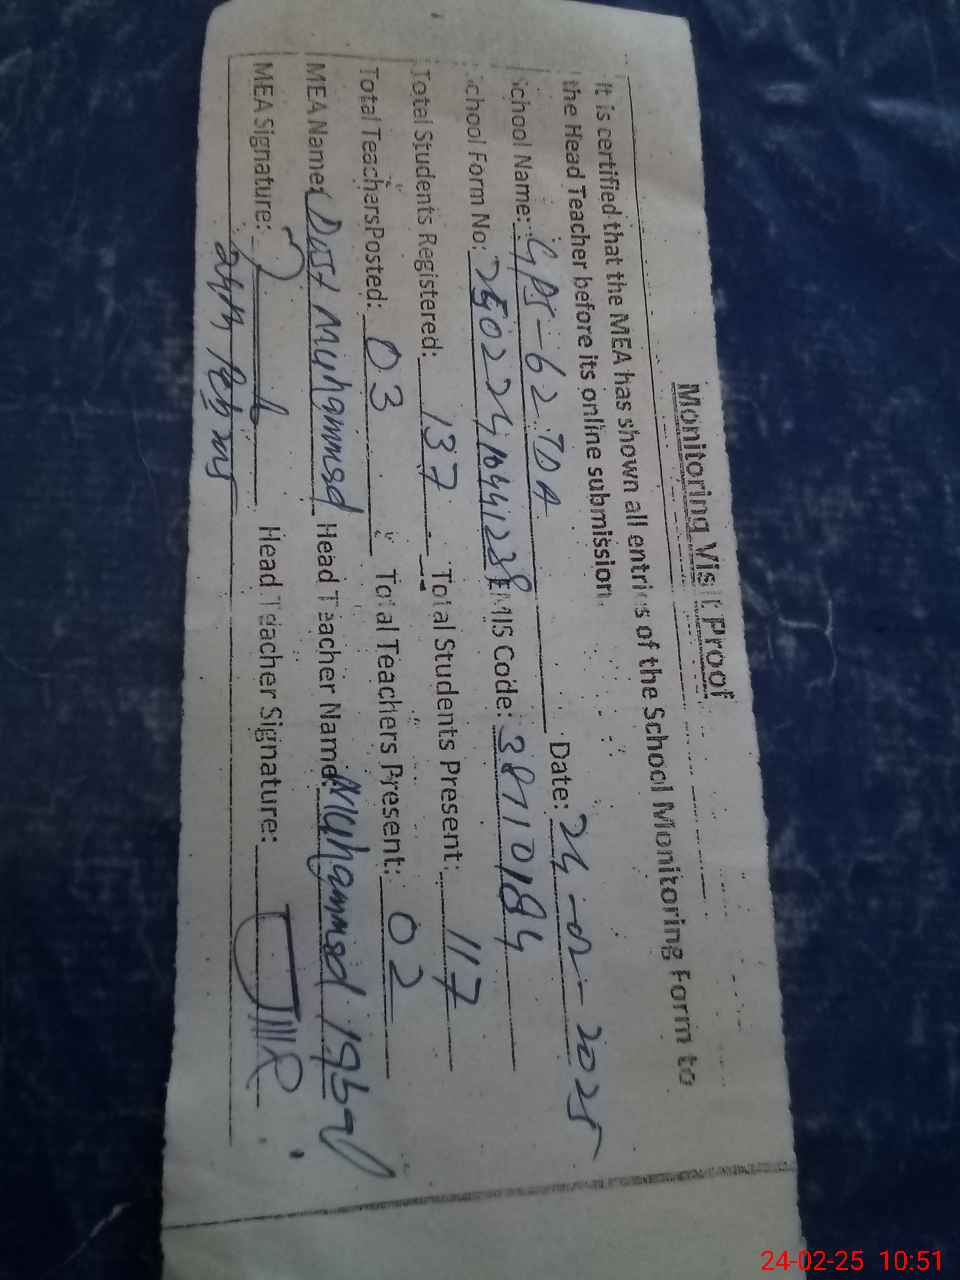 Monitoring Visit Proof
It is certified that the MEA has shown all entries of the School Monitoring Form to
the Head Teacher before its online submission.
School Name: GPS-62 TDA Date: 24-02-2025
School Form No: EMIS Code: 38710184
Total Students Registered: 137 Total Students Present: 117
Total Teachers Posted: 03 Total Teachers Present: 02
MEA Name: Dost Muhammad Head Teacher Name: Muhammad Iqbal
MEA Signature: Head Teacher Signature:
24-02-25 10:51